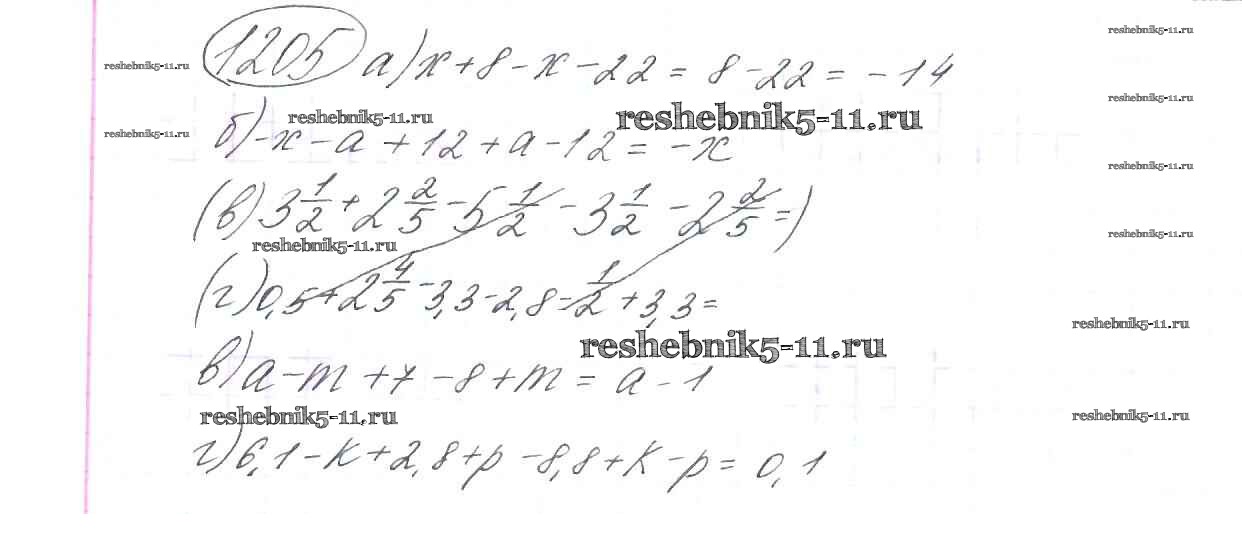 1205 а) x + 8 - x - 22 = 8 - 22 = -14
б) -x - a + 12 + a - 12 = -x
(в) 3 1/2 + 2 2/5 - 5 1/2 - 3 1/2 - 2 2/5 =)
(г) 0,5 + 2 4/5 - 3,3 - 2,8 - 1/2 + 3,3 =
в) a - m + 7 - 8 + m = a - 1
г) 6,1 - k + 2,8 + p - 8,8 + k - p = 0,1
reshebnik5-11.ru
reshebnik5-11.ru
reshebnik5-11.ru
reshebnik5-11.ru
reshebnik5-11.ru
reshebnik5-11.ru
reshebnik5-11.ru
reshebnik5-11.ru
reshebnik5-11.ru
reshebnik5-11.ru
reshebnik5-11.ru
reshebnik5-11.ru
reshebnik5-11.ru